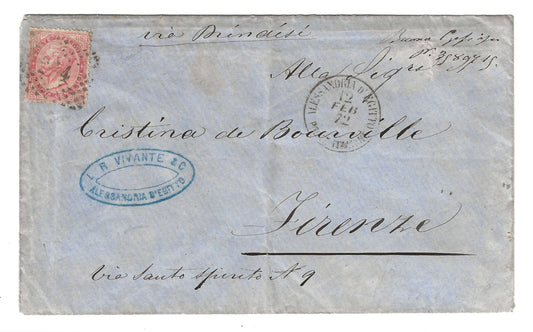 via Brindisi
Alla Sigra
ALESSANDRIA D'EGITTO
12
FEB
72
Cristina de Bourville
L. R. VIVANTE & C.
ALESSANDRIA D'EGITTO
Firenze
Via Santo Spirito N 9